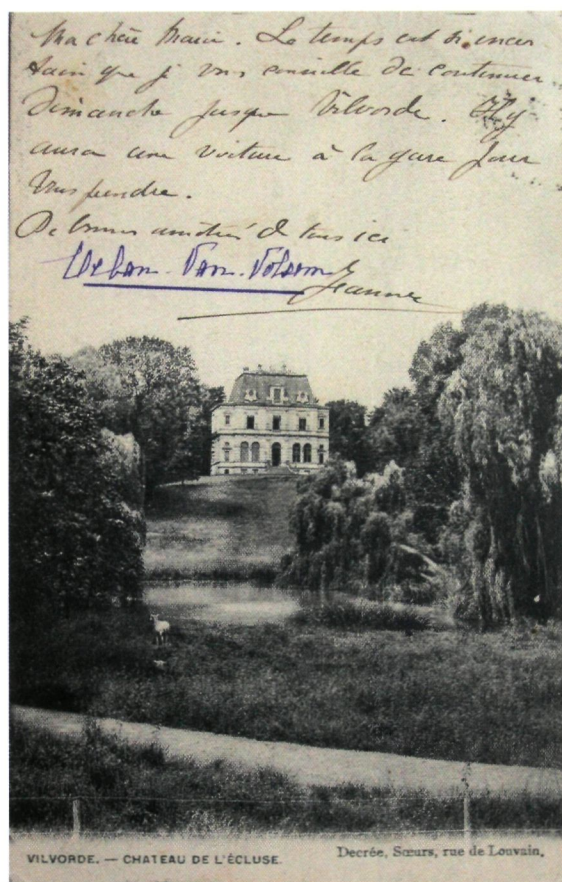 Ma chère Marie. Le temps est si incer
tain que je vous conseille de continuer
Dimanche jusque Vilvorde. Il y
aura une voiture à la gare pour
vous prendre.
De bonnes amitiés de tous ici
Jeanne
VILVORDE. — CHATEAU DE L'ÉCLUSE.
Decrée, Sœurs, rue de Louvain,